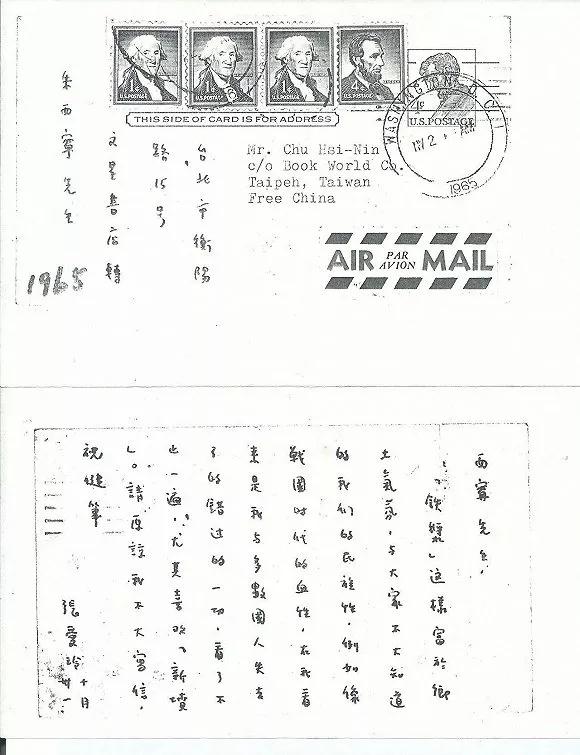 U.S.POSTAGE
U.S.POSTAGE
U.S.POSTAGE
U.S.POSTAGE
U.S.POSTAGE
WASHINGTON, D.C.
1965
THIS SIDE OF CARD IS FOR ADDRESS
Mr. Chu Hsi-Nin
c/o Book World Co.
Taipeh, Taiwan
Free China
AIR PAR AVION MAIL
台北市衡陽
路15号
文星書店轉
朱西甯先生
1965
西甯先生,
「鉄漿」这樣富於鄉
土氣氛,与大家不大知道
的我们的民族性,例如像
戰國时代的血性,在我看
來是我与多數國人失去
了的錯过的一切,看了不
止一遍,尤其喜欢「新墳
」。請原諒我不大寫信,
祝健筆
張愛玲 十月